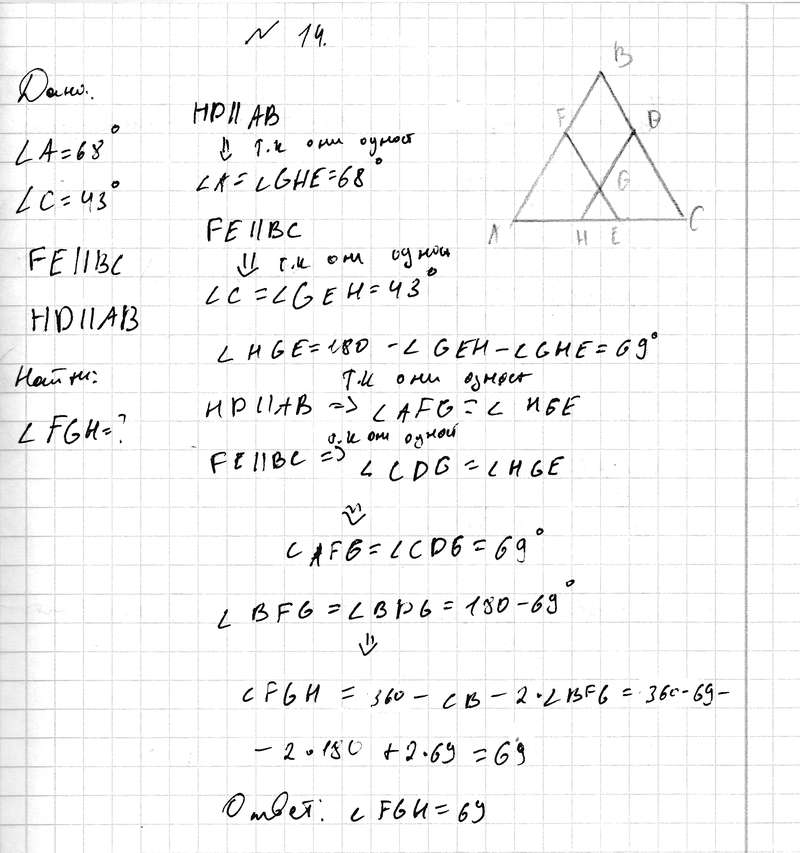 N 14.
Дано:
∠A=68°
∠C=43°
FE||BC
HD||AB
Найти:
∠FGH=?
B
F
D
G
A
H
E
C
HD||AB
⇓ т.к они одност
∠A=∠GHE=68°
FE||BC
⇓ т.к они одност
∠C=∠GEH=43°
∠HGE=180-∠GEH-∠GHE=69°
т.к они одност
HD||AB => ∠AFG=∠HGE
т.к они одной
FE||BC => ∠CDG=∠HGE
⇓
∠AFG=∠CDG=69°
∠BFG=∠BDG=180-69°
⇓
∠FGH=360-∠B-2·∠BFG=360-69-
-2·180+2·69=69
Ответ: ∠FGH=69